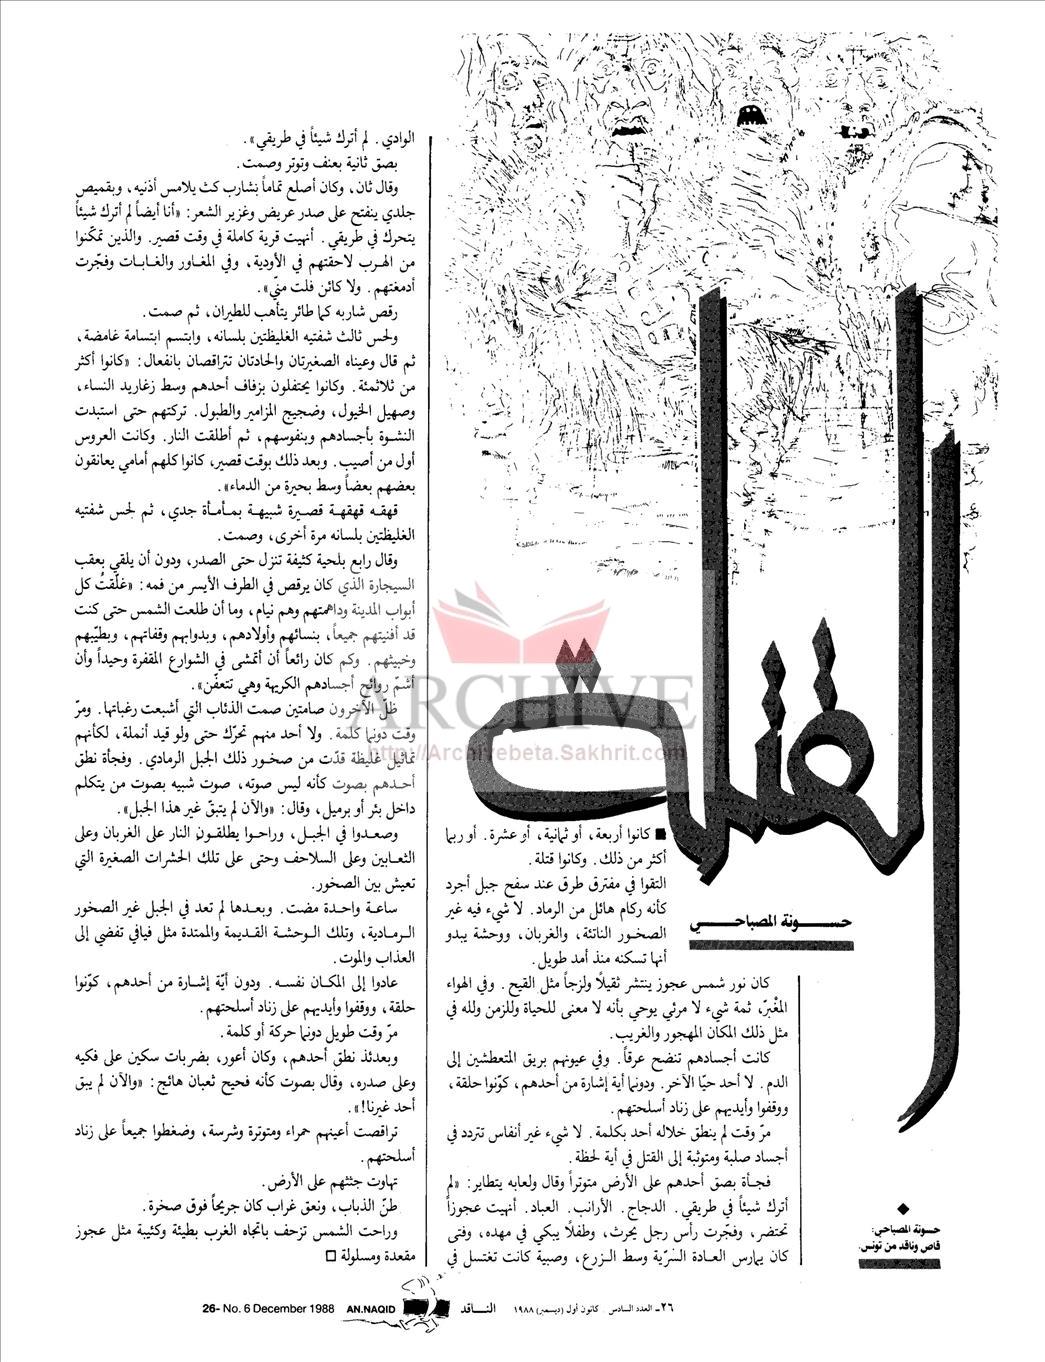 القتلة
حسونة المصباحي
■ كانوا أربعة، أو ثمانية، أو عشرة. أو ربما
أكثر من ذلك. وكانوا قتلة.
التقوا في مفترق طرق عند سفح جبل أجرد
كأنه ركام هائل من الرماد. لا شيء فيه غير
الصخور الناتئة، والغربان، ووحشة يبدو
أنها تسكنه منذ أمد طويل.
كان نور شمس عجوز ينتشر ثقيلًا ولزجاً مثل القيح. وفي الهواء
المغْبرّ، ثمة شيء لا مرئي يوحي بأنه لا معنى للحياة وللزمن ولله في
مثل ذلك المكان المهجور والغريب.
كانت أجسادهم تنضح عرقاً. وفي عيونهم بريق المتعطشين إلى
الدم. لا أحد حيّا الآخر. ودونما أية إشارة من أحدهم، كوّنوا حلقة،
ووقفوا وأيديهم على زناد أسلحتهم.
مرّ وقت لم ينطق خلاله أحد بكلمة. لا شيء غير أنفاس تتردد في
أجساد صلبة ومتوثبة إلى القتل في أية لحظة.
فجأة بصق أحدهم على الأرض متوتراً وقال ولعابه يتطاير: «لم
أترك شيئاً في طريقي. الدجاج. الأرانب. العباد. أنهيت عجوزاً
تحتضر، وفجّرت رأس رجل يحرث، وطفلًا يبكي في مهده، وفتى
كان يمارس العادة السّرّية وسط الزرع، وصبية كانت تغتسل في
الوادي. لم أترك شيئاً في طريقي».
بصق ثانية بعنف وتوتر وصمت.
وقال ثان، وكان أصلع تماماً بشارب كث يلامس أذنيه، وبقميص
جلدي ينفتح على صدر عريض وغزير الشعر: «أنا أيضاً لم أترك شيئاً
يتحرك في طريقي. أنهيت قرية كاملة في وقت قصير. والذين تمكّنوا
من الهرب لاحقتهم في الأودية، وفي المغاور والغابات وفجّرت
أدمغتهم. ولا كائن فلت منّي».
رقص شاربه كما طائر يتأهب للطيران، ثم صمت.
ولحس ثالث شفتيه الغليظتين بلسانه، وابتسم ابتسامة غامضة،
ثم قال وعيناه الصغيرتان والحادتان تتراقصان بانفعال: «كانوا أكثر
من ثلاثمئة. وكانوا يحتفلون بزفاف أحدهم وسط زغاريد النساء،
وصهيل الخيول، وضجيج المزامير والطبول. تركتهم حتى استبدت
النشوة بأجسادهم وبنفوسهم، ثم أطلقت النار. وكانت العروس
أول من أصيب. وبعد ذلك بوقت قصير، كانوا كلهم أمامي يعانقون
بعضهم بعضاً وسط بحيرة من الدماء».
قهقه قهقهة قصيرة شبيهة بمأمأة جدي، ثم لحس شفتيه
الغليظتين بلسانه مرة أخرى، وصمت.
وقال رابع بلحية كثيفة تنزل حتى الصدر، ودون أن يلقي بعقب
السيجارة الذي كان يرقص في الطرف الأيسر من فمه: «غلّقتُ كل
أبواب المدينة وداهمتهم وهم نيام، وما أن طلعت الشمس حتى كنت
قد أفنيتهم جميعاً، بنسائهم وأولادهم، وبدوابهم وقفاتهم، وبطيّبهم
وخبيثهم. وكم كان رائعاً أن أتمشى في الشوارع المقفرة وحيداً وأن
أشمّ روائح أجسادهم الكريهة وهي تتعفّن».
ظلّ الآخرون صامتين صمت الذئاب التي أشبعت رغباتها. ومرّ
وقت دونما كلمة. ولا أحد منهم تحرّك حتى ولو قيد أنملة، لكأنهم
تماثيل غليظة قدّت من صخور ذلك الجبل الرمادي. وفجأة نطق
أحدهم بصوت كأنه ليس صوته، صوت شبيه بصوت من يتكلم
داخل بئر أو برميل، وقال: «والآن لم يتبقّ غير هذا الجبل».
وصعدوا في الجبل، وراحوا يطلقون النار على الغربان وعلى
الثعابين وعلى السلاحف وحتى على تلك الحشرات الصغيرة التي
تعيش بين الصخور.
ساعة واحدة مضت. وبعدها لم تعد في الجبل غير الصخور
الرمادية، وتلك الوحشة القديمة والممتدة مثل فيافي تفضي إلى
العذاب والموت.
عادوا إلى المكان نفسه. ودون أيّة إشارة من أحدهم، كوّنوا
حلقة، ووقفوا وأيديهم على زناد أسلحتهم.
مرّ وقت طويل دونما حركة أو كلمة.
وبعدئذ نطق أحدهم، وكان أعور، بضربات سكين على فكيه
وعلى صدره، وقال بصوت كأنه فحيح ثعبان هائج: «والآن لم يبق
أحد غيرنا!».
تراقصت أعينهم حمراء ومتوترة وشرسة، وضغطوا جميعاً على زناد
أسلحتهم.
تهاوت جثثهم على الأرض.
طنّ الذباب، ونعق غراب كان جريحاً فوق صخرة.
وراحت الشمس تزحف باتجاه الغرب بطيئة وكئيبة مثل عجوز
مقعدة ومسلولة □
◆
حسونة المصباحي:
قاص وناقد من تونس.
ARCHIVE
http://Archivebeta.Sakhrit.com
٢٦ـ العدد السادس كانون أول (ديسمبر) ١٩٨٨ الناقد
26- No. 6 December 1988 AN.NAQID